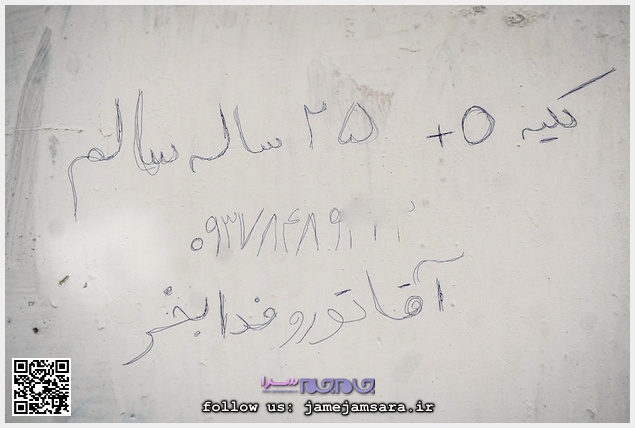 کلیه O+ ۲۵ ساله سالم
۰۹۳۷۸۴۸۹
آقا تورو خدا بخر
جام‌جم سرا
follow us: jamejamsara.ir